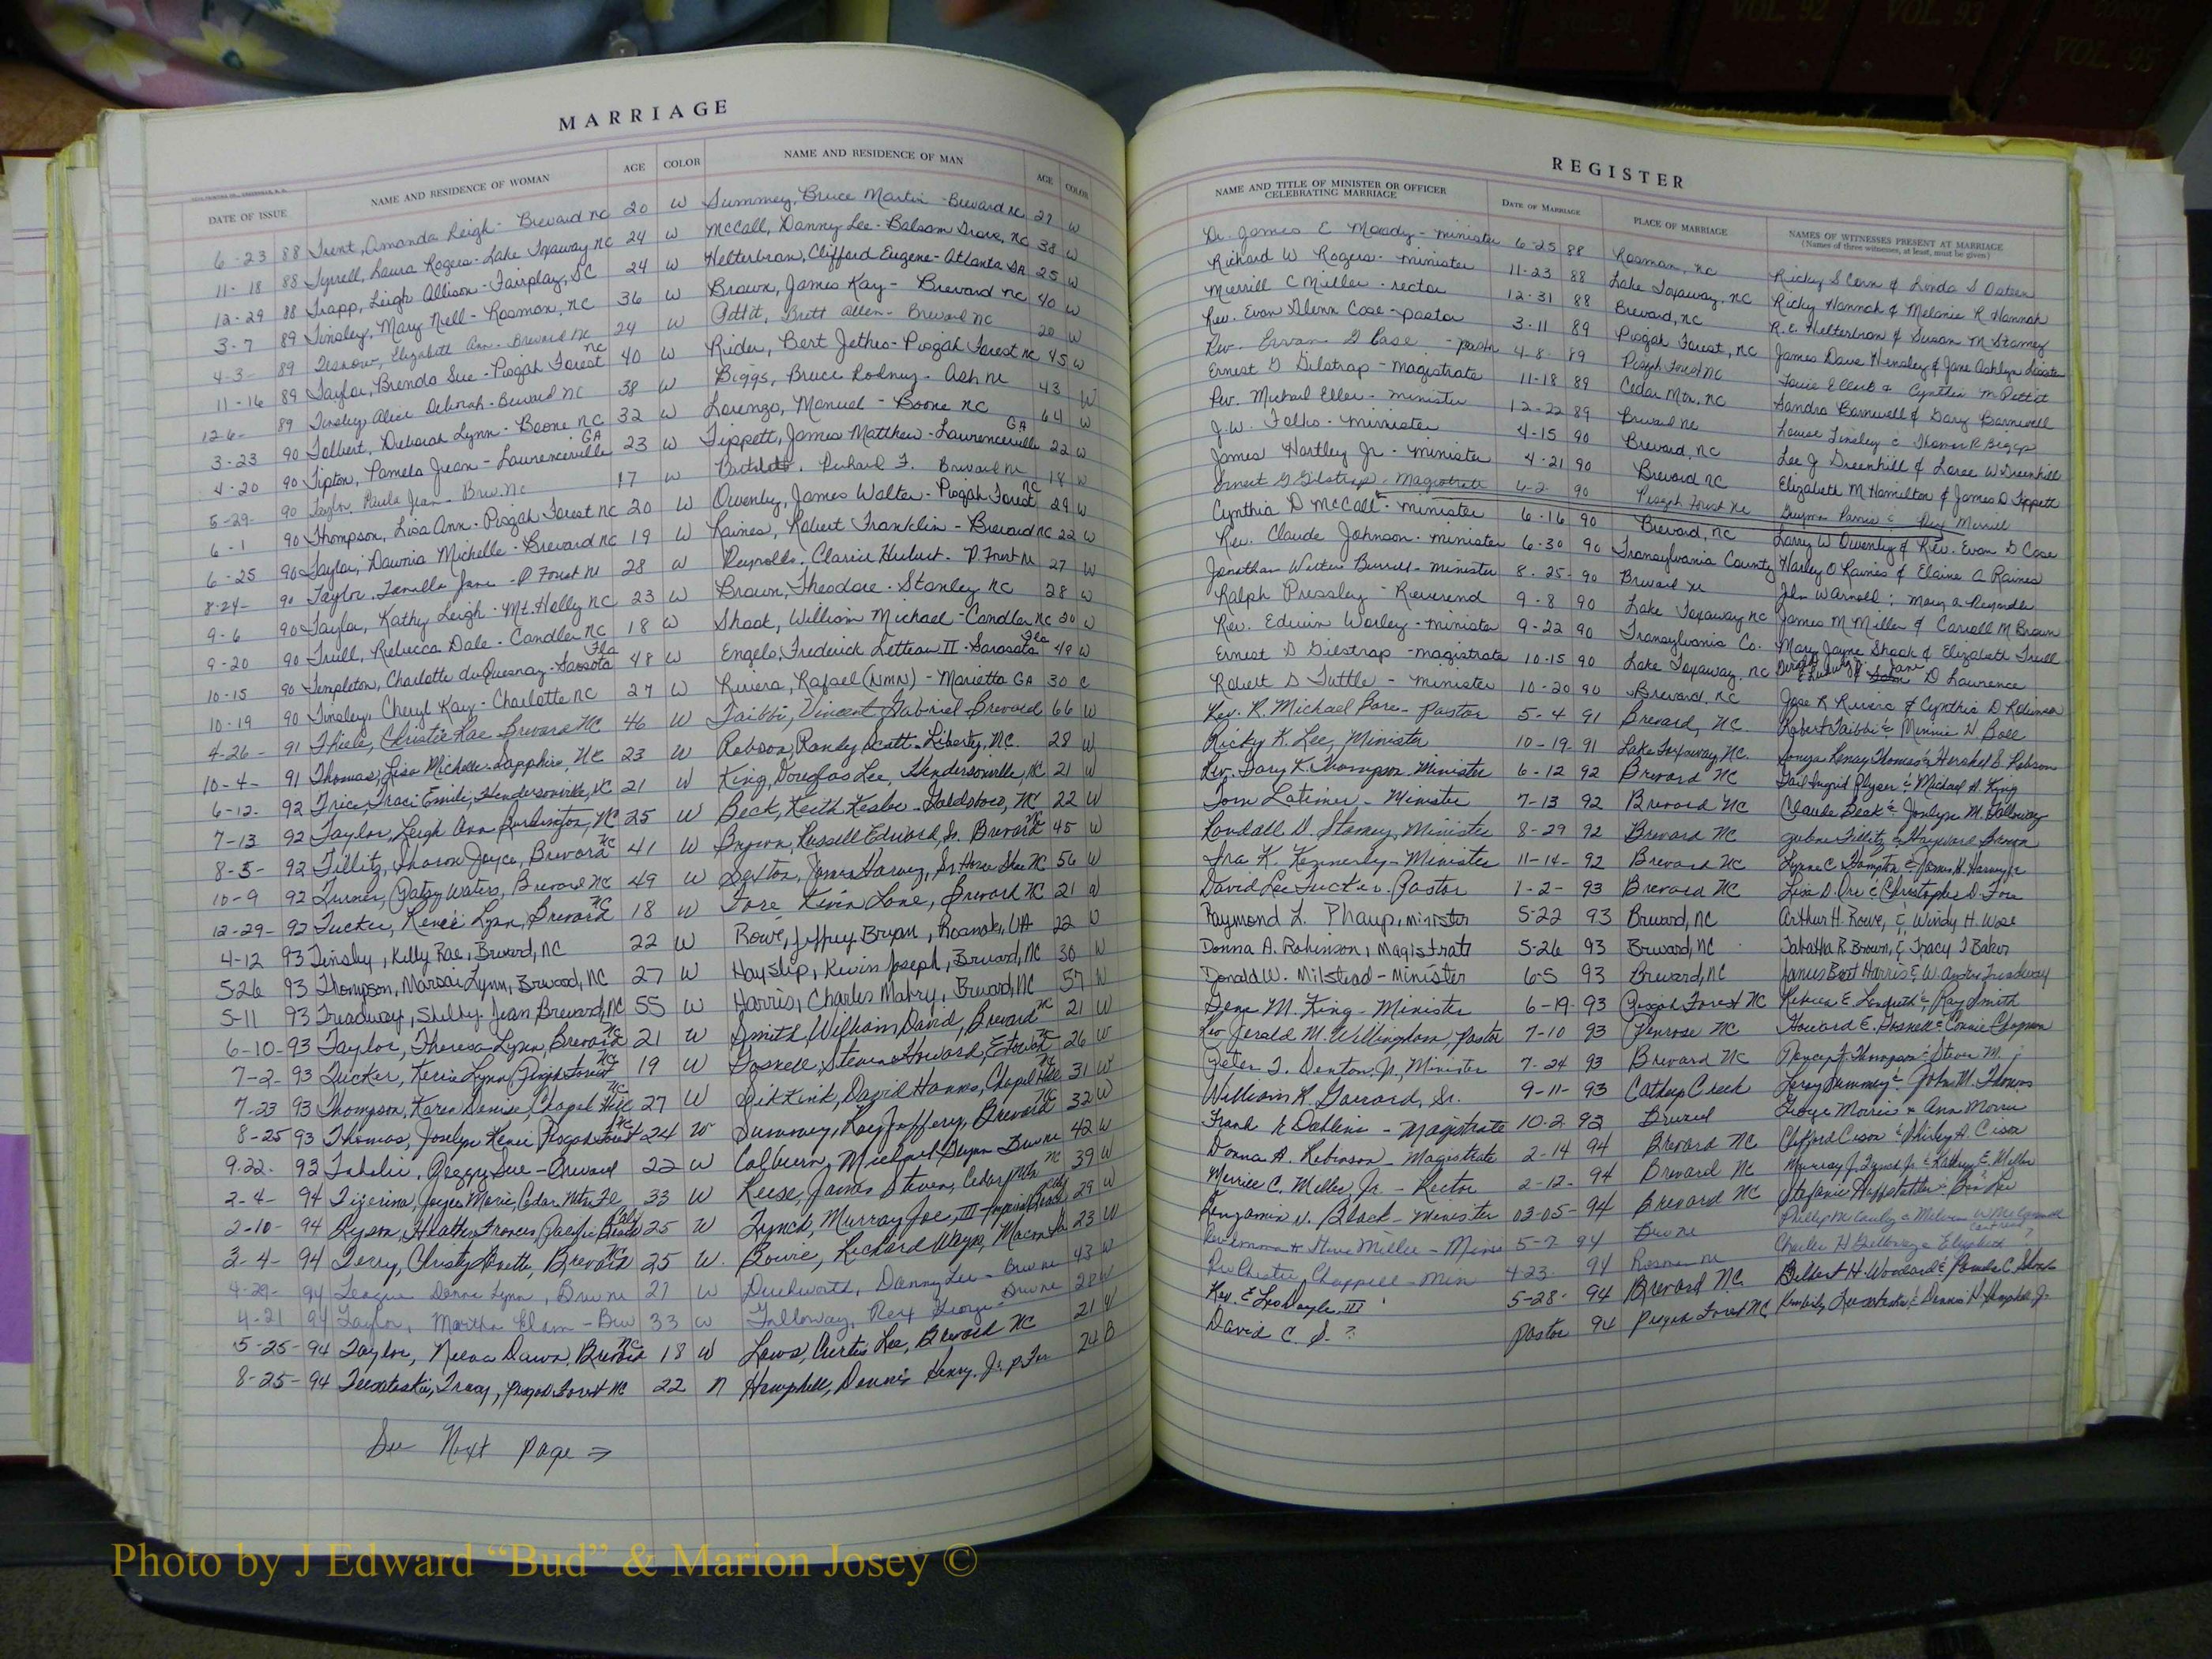 VOL. 92
VOL. 93
VOL. 95
MARRIAGE
DATE OF ISSUE NAME AND RESIDENCE OF WOMAN AGE COLOR NAME AND RESIDENCE OF MAN AGE COLOR
6-23 88 Trent, Amanda Leigh - Brevard NC 20 W Summey, Bruce Martin - Brevard NC 27 W
11-18 88 Tyrrell, Laura Rogers - Lake Toxaway NC 24 W McCall, Danny Lee - Balsam Grove, NC 38 W
12-29 88 Trapp, Leigh Allison - Fairplay, SC 24 W Helterbran, Clifford Eugene - Atlanta GA 25 W
3-7 89 Tinsley, Mary Nell - Rosman, NC 36 W Brown, James Kay - Brevard NC 40 W
4-3- 89 Elizabeth Ann - Brevard NC 24 W Pettit, Brett Allen - Brevard NC 20 W
11-16 89 Taylor, Brenda Sue - Pisgah Forest NC 40 W Rider, Bert Jethro - Pisgah Forest NC 45 W
12-6- 89 Tinsley, Alice Deborah - Brevard NC 38 W Biggs, Bruce Rodney - Ash NC 43 W
3-23 90 Tolbert, Deborah Lynn - Boone NC 32 W Lorenzo, Manuel - Boone NC 64 W
4-20 90 Tipton, Pamela Jean - Lawrenceville GA 23 W Tippett, James Matthew - Lawrenceville GA 22 W
5-29- 90 Taylor, Paula Jean - Brev. NC 17 W Richard F. Brevard NC 18 W
6-1 90 Thompson, Lisa Ann - Pisgah Forest NC 20 W Owenby, James Walter - Pisgah Forest NC 29 W
6-25 90 Taylor, Dawnia Michelle - Brevard NC 19 W Raines, Robert Franklin - Brevard NC 22 W
8-24- 90 Taylor, Jane - P Forest NC 28 W Reynolds, Hubert - P Forest NC 27 W
9-6 90 Taylor, Kathy Leigh - Mt. Holly NC 23 W Brown, Theodore - Stanley NC 28 W
9-20 90 Trull, Rebecca Dale - Candler NC 18 W Shook, William Michael - Candler NC 20 W
10-15 90 Templeton, Charlotte duQuesnay - Sarasota Fla 48 W Engelo, Frederick II - Sarasota Fla 49 W
10-19 90 Tinsley, Cheryl Kay - Charlotte NC 27 W Rivera, Rafael (NMN) - Marietta GA 30 C
4-26- 91 Thiele, Christie Rae Brevard NC 46 W Taibbi, Vincent Gabriel Brevard 66 W
10-4- 91 Thomas, Lisa Michelle - Sapphire, NC 23 W Robson, Randy Scott - Liberty, NC. 28 W
6-12- 92 Trice, Traci Emily, Hendersonville, NC 21 W King, Douglas Lee, Hendersonville, NC 21 W
7-13 92 Taylor, Leigh Ann Burlington, NC 25 W Beck, Keith - Goldsboro, NC 22 W
8-5- 92 Tillitz, Sharon Joyce, Brevard NC 41 W Brown, Russell Edward, Sr. Brevard NC 45 W
10-9 92 Turner, Patsy Waters, Brevard NC 49 W Sexton, James Harvey, Sr. Horse Shoe NC 56 W
12-29- 92 Tucker, Renee Lynn, Brevard NC 18 W Fore Kevin Lane, Brevard NC 21 W
4-12 93 Tinsley, Kelly Rae, Brevard, NC 22 W Rowe, Jeffrey Bryan, Roanoke, VA 22 W
5-26 93 Thompson, Lynn, Brevard, NC 27 W Hayslip, Kevin Joseph, Brevard, NC 30 W
5-11 93 Treadway, Shelby Jean Brevard, NC 55 W Harris, Charles Mabry, Brevard, NC 57 W
6-10-93 Taylor, Theresa Lynn, Brevard NC 21 W Smith, William David, Brevard NC 21 W
7-2- 93 Tucker, Kerrie Lynn, Pisgah Forest NC 19 W Gosnell, Steven Howard, Etowah NC 26 W
7-23 93 Thompson, Karen Denise, Chapel Hill NC 27 W David Hanns, Chapel Hill NC 31 W
8-25 93 Thomas, Joselyn Renee Pisgah Forest NC 24 W Summey, Roy Jeffery, Brevard NC 32 W
9-22- 93 Peggy Sue - Brevard 22 W Michael Glynn 42 W
2-4- 94 Tizerina, Joyce Marie, Cedar Mtn. 33 W Reese, James Steven, Cedar Mtn NC 39 W
2-10- 94 Tyson, Heather Frances, Pacific Beach Calif 25 W Lynch, Murray Joe, III - Imperial Beach 29 W
3-4- 94 Terry, Christy Annette, Brevard NC 25 W. Bowie, Richard Wayne, Macon GA 23 W
4-29- 94 Teague Donna Lynn, Brev NC 27 W Duckworth, Danny Lee - Brev NC 43 W
4-21 94 Taylor, Martha Elam - Brev 33 W Galloway, Rex George - Brev NC 28 W
5-25-94 Taylor, Dawn, Brevard NC 18 W Laws, Curtis Lee, Brevard NC 21 W
8-25-94 Tracy, Pisgah Forest NC 22 Hemphill, Dennis Henry, Jr. P For 24 B
See Next page ⇒
REGISTER
NAME AND TITLE OF MINISTER OR OFFICER CELEBRATING MARRIAGE DATE OF MARRIAGE PLACE OF MARRIAGE NAMES OF WITNESSES PRESENT AT MARRIAGE
(Names of three witnesses, at least, must be given)
Dr. James E Moody - minister 6-25 88 Rosman, NC Ricky S Corn & Linda S Osteen
Richard W Rogers - minister 11-23 88 Lake Toxaway, NC Ricky Hannah & Melanie R Hannah
Merrill C Miller - rector 12-31 88 Brevard, NC R.C. Helterbran & Susan M Stamey
Rev. Evan Glenn Case - pastor 3-11 89 Pisgah Forest, NC James Dave Hensley & Jane Ashlyn
Rev. G Case - pastor 4-8- 89 Pisgah Forest NC Cynthia M Pettit
Ernest G Gilstrap - magistrate 11-18 89 Cedar Mtn, NC Sandra Barnwell & Gary Barnwell
Rev. Michael Eller - minister 12-22 89 Brevard NC Louise Tinsley & Thomas R Biggs
J.W. Folks - minister 4-15 90 Brevard, NC Lee J Greenhill & Loree W Greenhill
James Hartley Jr - minister 4-21 90 Brevard NC Elizabeth M Hamilton & James D Tippett
Ernest G Gilstrap - Magistrate 6-2- 90 Pisgah Forest NC
Cynthia D McCall - minister 6-16 90 Brevard, NC Larry W Owenby & Rev. Evan G Case
Rev. Claude Johnson - minister 6-30 90 Transylvania County Harley O Raines & Elaine A Raines
Jonathan - minister 8-25- 90 Brevard NC John W Arnold; Mary A Reynolds
Ralph Pressley - Reverend 9-8 90 Lake Toxaway NC James M Miller & Carroll M Brown
Rev. Edwin Worley - minister 9-22 90 Transylvania Co. Mary Jayne Shook & Elizabeth Trull
Ernest G Gilstrap - magistrate 10-15 90 Lake Toxaway, NC Jane D Lawrence
Robert G Tuttle - minister 10-20 90 Brevard, NC Jose R Rivera & Cynthia D Robinson
Rev. R. Michael - Pastor 5-4 91 Brevard, NC. Robert Taibbi & Minnie H Ball
Ricky K. Lee, Minister 10-19-91 Lake Toxaway NC. Sonya Renay Thomas & Hershel S. Robson
Rev. Gary K. Thompson, Minister 6-12 92 Brevard NC Gail Ingrid & Michael A. King
Tom Latimer - Minister 7-13 92 Brevard NC Claude Beck & M. Galloway
Randall D. Stamey, Minister 8-29 92 Brevard NC Tillitz & Hayward Brown
Ira K. Kennerly - Minister 11-14- 92 Brevard NC Lynne C Hampton & James H. Harvey Jr
David Lee Tucker - Pastor 1-2- 93 Brevard NC Lisa D. Orr & Christopher D. Fore
Raymond L. Phaup, minister 5-22 93 Brevard, NC Arthur H. Rowe, & Windy H. Wise
Donna A. Robinson, Magistrate 5-26 93 Brevard, NC Tabatha R. Brown, & Tracy J Baker
Donald W. Milstead - minister 6-5 93 Brevard, NC James Harris & W. Andre Treadway
Gene M. King - Minister 6-19-93 Pisgah Forest NC Rebecca E. & Ray Smith
Rev Jerald M. Willingham, Pastor 7-10 93 Penrose NC Howard E. Gosnell & Connie Chapman
Peter T. Denton, Jr, Minister 7-24 93 Brevard NC Nancy J. Thompson & Steven M.
William R. Garrard, Sr. 9-11- 93 Cathey Creek Leroy Summey & John M. Thomas
Frank R Dahline - Magistrate 10-2 93 Brevard George Morris & Ann Morris
Donna A. Robinson - Magistrate 2-14 94 Brevard NC Clifford Cison & Shirley A. Cison
Merrill C. Miller, Jr. - Rector 2-12- 94 Brevard NC Murray J. Lynch Jr & Kathryn E. Miller
Benjamin N. Black - Minister 03-05-94 Brevard NC Stefanie & Lee
Steve Miller - Minis 5-7 94 Brev NC
Rev Chester Chappell - Min 4-23- 94 Rosman NC Charles H Galloway & Elizabeth ?
Rev. E Leo Doyle, III 5-28- 94 Brevard NC Delbert H. Woodard & Pamela C
David C. S. ? Pastor 94 Pisgah Forest NC Kimberly & Dennis H. Hemphill, Jr.
Photo by J Edward “Bud” & Marion Josey ©